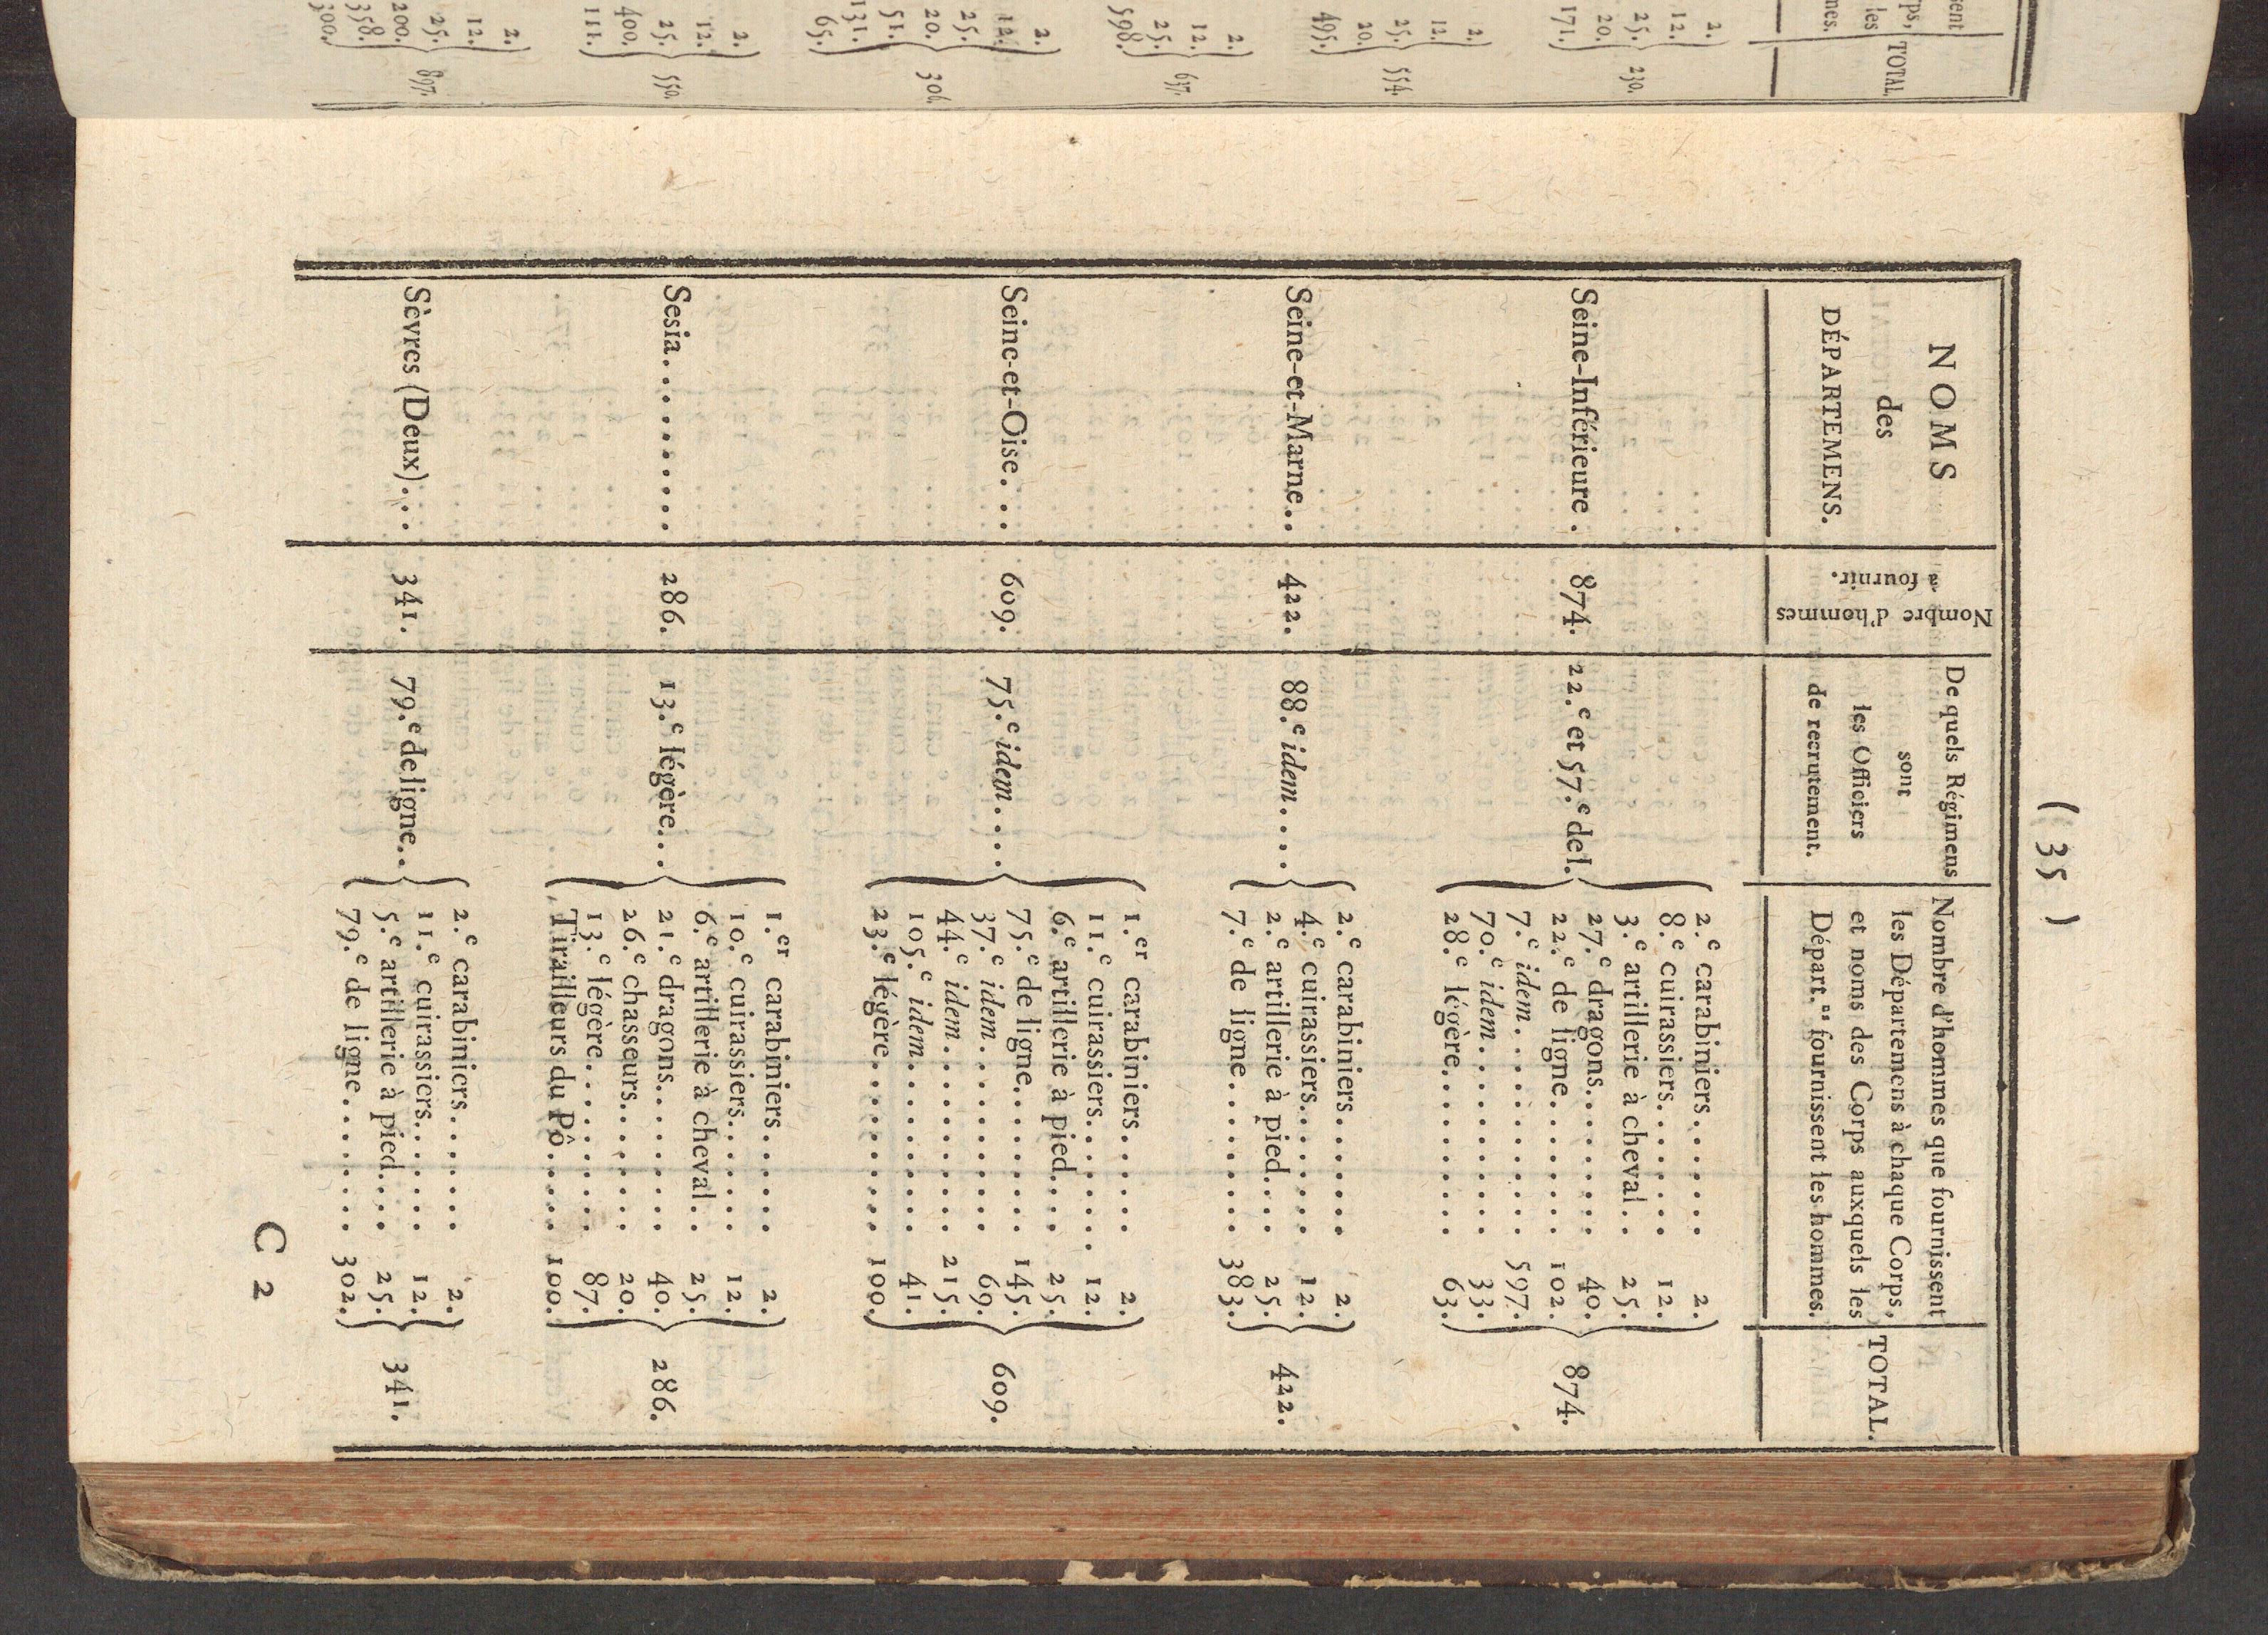 ( 35 )
NOMS
des
DÉPARTEMENS.
Nombre d'hommes
à fournir.
De quels Régimens
sont
les Officiers
de recrutement.
Nombre d'hommes que fournissent
les Départemens à chaque Corps,
et noms des Corps auxquels les
Départ.ns fournissent les hommes.
TOTAL.
Seine-Inférieure . 874. 22.e et 57.e del.
2.e carabiniers...... 2.
8.e cuirassiers....... 12.
3.e artillerie à cheval.. 25.
27.e dragons........ 40.
22.e de ligne........ 102.
7.e idem.......... 597.
70.e idem.......... 33.
28.e légère......... 63.
874.
Seine-et-Marne.. 422. 88.e idem....
2.e carabiniers...... 2.
4.e cuirassiers....... 12.
2.e artillerie à pied.... 25.
7.e de ligne......... 383.
422.
Seine-et-Oise.... 609. 75.e idem....
1.er carabiniers...... 2.
11.e cuirassiers....... 12.
6.e artillerie à pied.... 25.
75.e de ligne........ 145.
37.e idem.......... 69.
44.e idem.......... 215.
105.e idem.......... 41.
23.e légère.......... 100.
609.
Sesia.......... 286. 13.e légère...
1.er carabiniers...... 2.
10.e cuirassiers....... 12.
6.e artillerie à cheval.. 25.
21.e dragons........ 40.
26.e chasseurs....... 20.
13.e légère......... 87.
Tirailleurs du Pô..... 100.
286.
Sèvres (Deux)... 341. 79.e de ligne..
2.e carabiniers...... 2.
11.e cuirassiers....... 12.
5.e artillerie à pied.... 25.
79.e de ligne........ 302.
341.
C 2
sent
rps,
les
mes.
TOTAL.
2.
12.
25.
20.
171.
230.
2.
12.
25.
20.
495.
554.
2.
12.
25.
598.
637.
2.
12.
25.
20.
51.
131.
65.
306.
2.
12.
25.
400.
111.
550.
2.
12.
25.
200.
358.
300.
897.